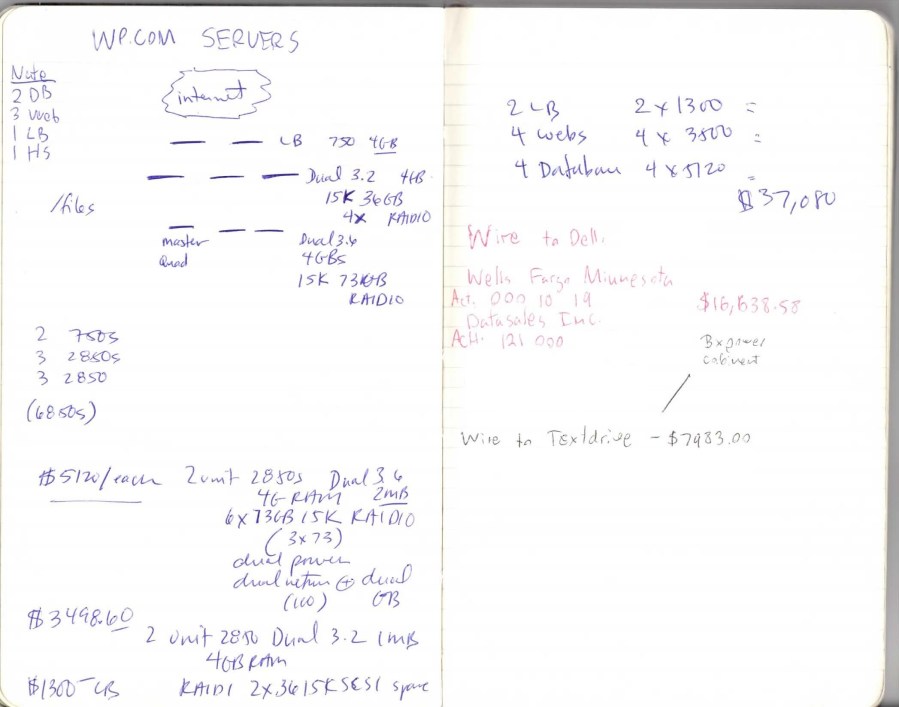 WP.COM SERVERS
Note
2 DB
3 Web
1 LB
1 HS
internet
LB 750 4GB
Dual 3.2 4GB
15K 36GB
4x RAID10
/files
master
Quad
Dual 3.6
4GBs
15K 73GB
RAID10
2 750s
3 2850s
3 2850
(6850s)
$5120/each 2 unit 2850s Dual 3.6
4G RAM 2MB
6x73GB 15K RAID10
(3x73)
dual power
dual
dual
(100) GB
$3498.60
2 unit 2850 Dual 3.2 1MB
4GB RAM
$1300 - LB RAID1 2x36 15K SCSI spare
2 LB 2 x 1300 =
4 webs 4 x 3500 =
4 Database 4 x 5120 =
$37,080
Wire to Dell.
Wells Fargo Minnesota
Act. 000 10 19
Datasales Inc.
ACH. 121 000
$16,638.58
power
cabinent
Wire to Textdrive - $7983.00